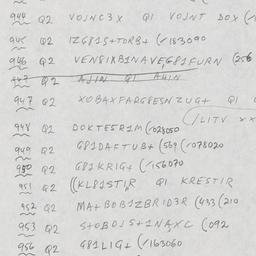 944 Q2 VOJNC3X QI VOJNT DOX
945 Q2 IZG81S+TORB+ (/183090
946 Q2 VENSIXBINAVE,G81FURN (256
947 Q2 AJIN QI AHIN
947 Q2 XOBAXFARG8ESNZUG+ QI
(/LITV XX
948 Q2 DOKTESR1M (/028050
949 Q2 G81DAFTUB+ (569 (/078020
950 Q2 G81KRIG+ (/156070
951 Q2 ((KL81STIR QI KRESTIR
952 Q2 MA+BOB1ZBRID3R (433 (210
953 Q2 S+OBDJS+1NAXC (092
956 Q2 G81LIG+ (/163060